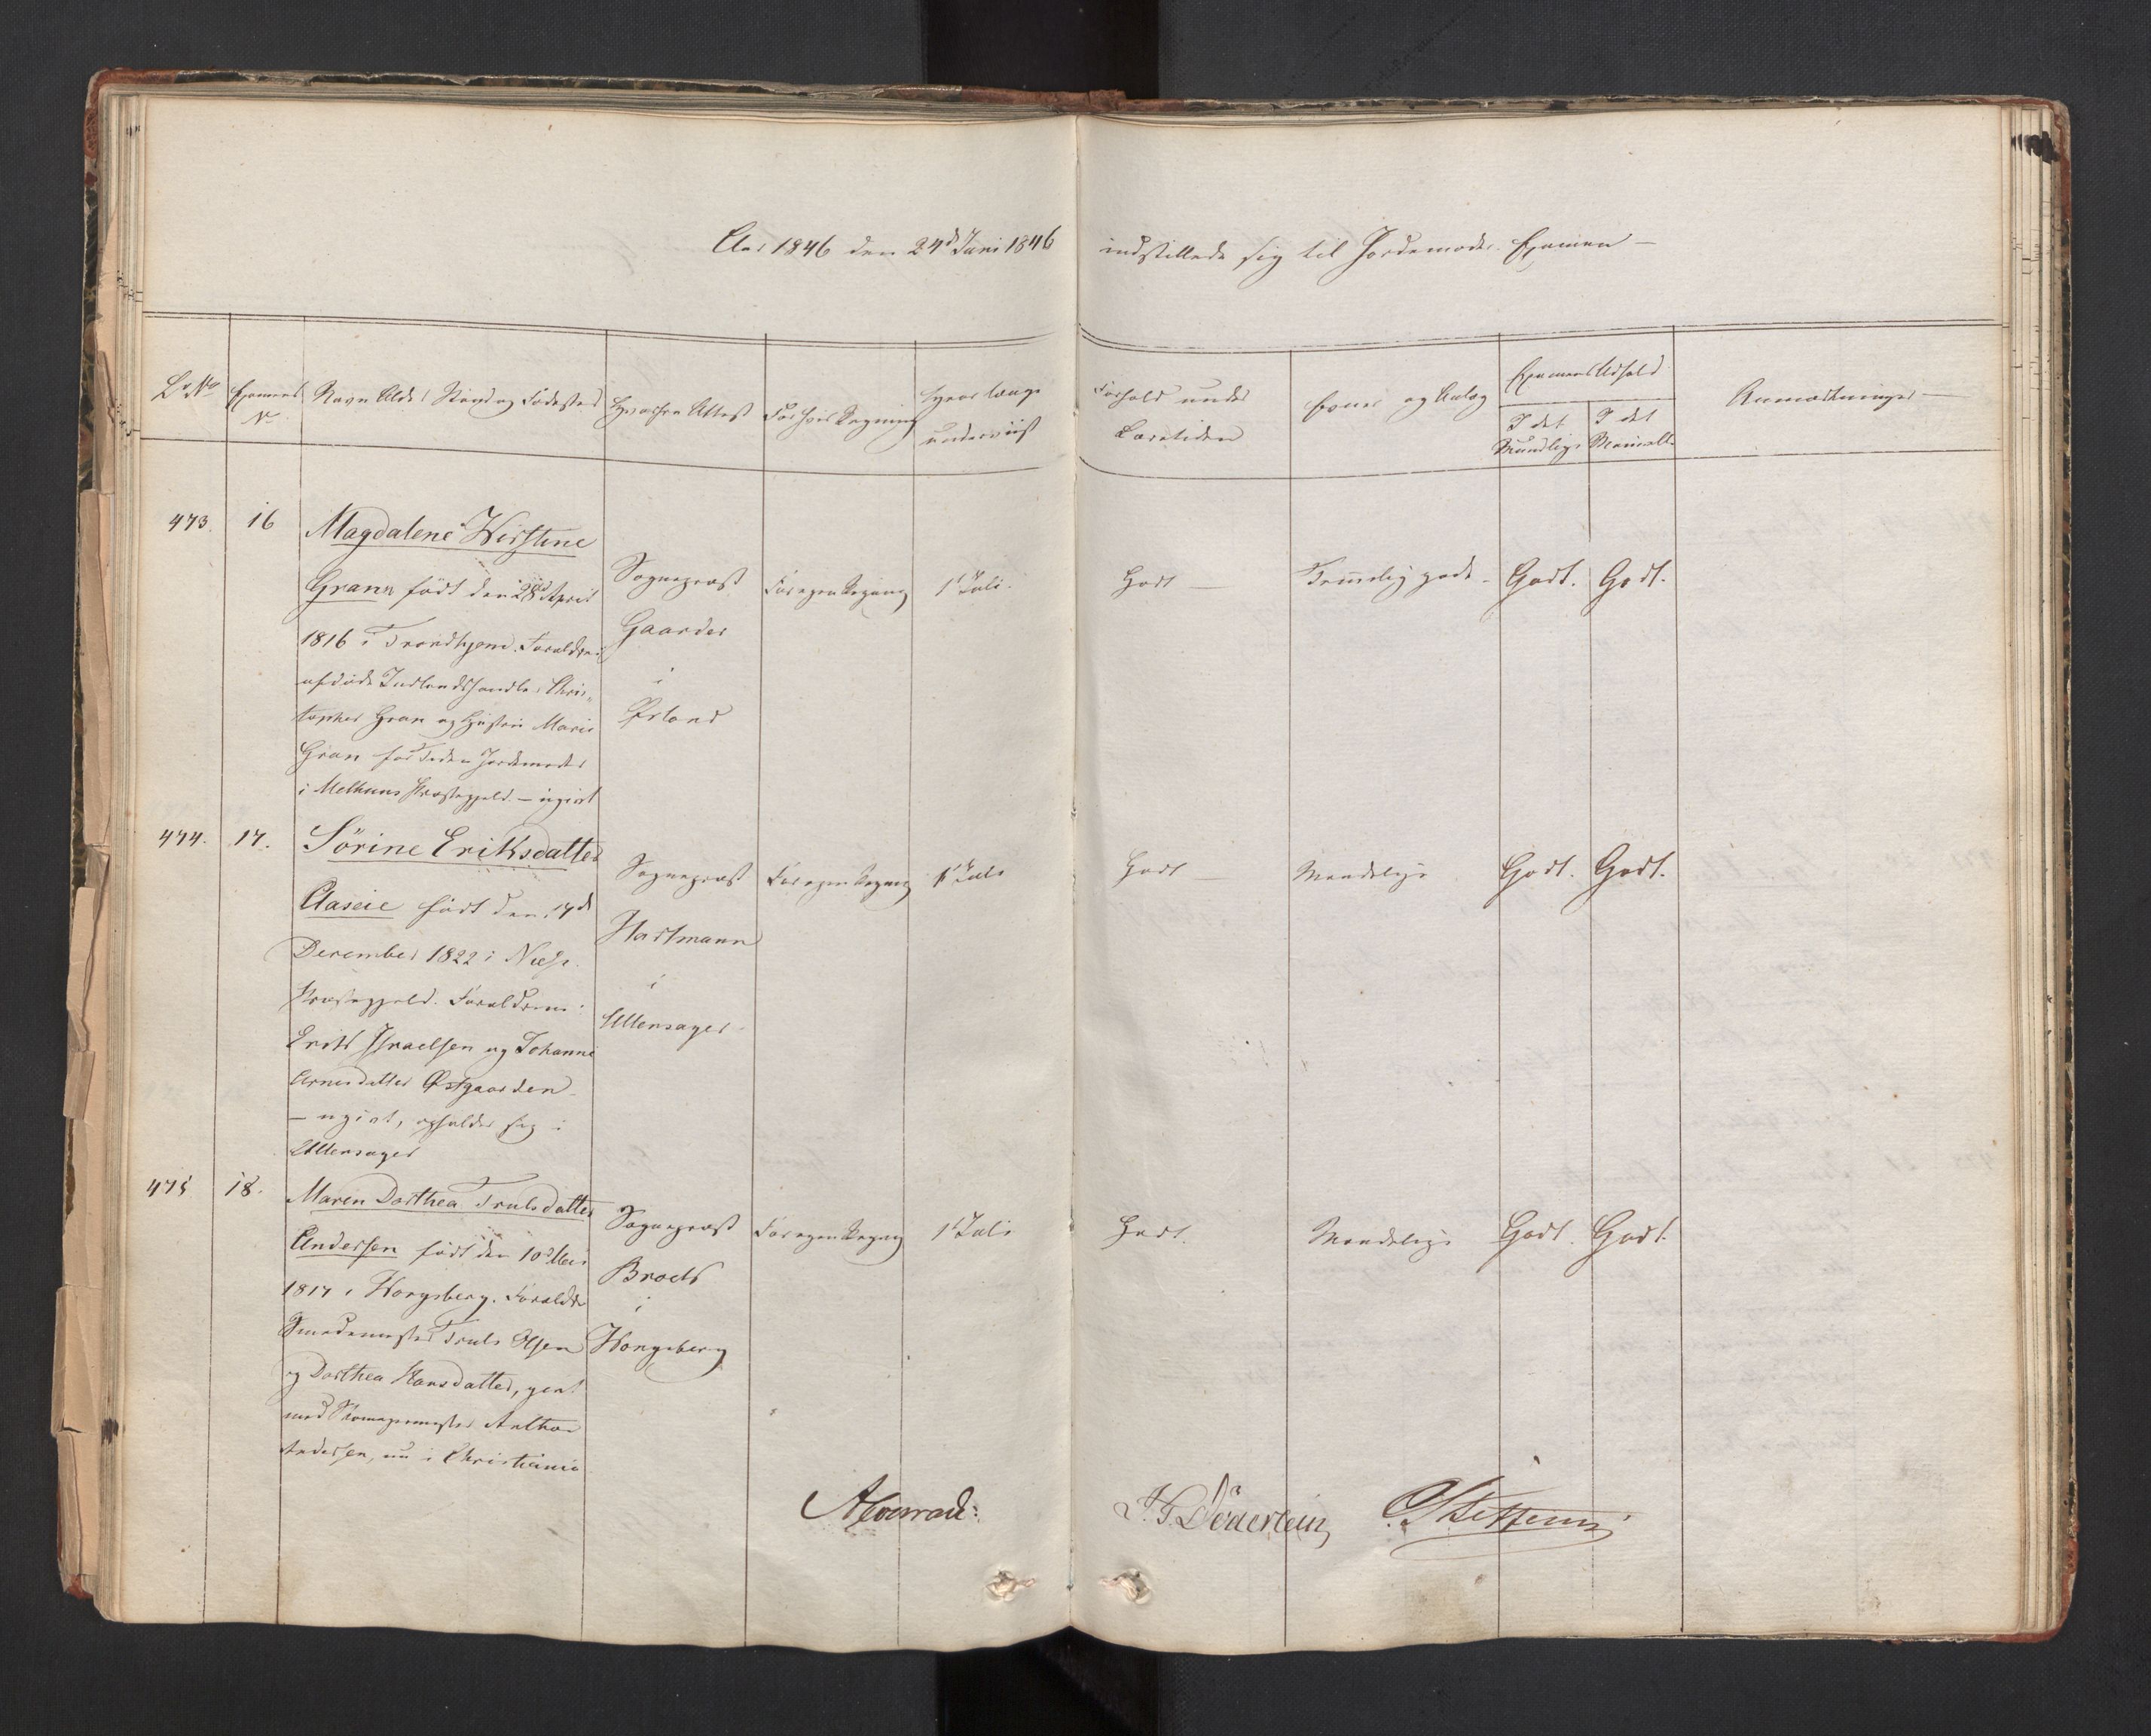 Aar 1846 den 24de Juni 1846 indstillede sig til Jordemoder Examen –
L. No
Examens No
Navn Alder Stand og Fødested
Hvorfra Attest
For hvis Regning
Hvor længe underviist
Forhold under Læretiden
Evner og Anlæg
Examens Udfald
I det Mundtlige
I det Manuelle
Anmærkninger –
473. 16
Magdalene Kirstine
Grann født den 28de April
1816 i Trondhjem. Forældre:
afdøde Indlandshandler Chris-
topher Gran og Hustru Marie
Gran for Tiden Jordemoder
i Melhuus Præstegjeld – ugivt
Sognepræst
Gaarder
i
Ørland
For egen Regning
1 Juli.
Godt –
Temmelig gode –
Godt. Godt.
474. 17.
Sörine Eriksdatter
Aaseie født den 17de
December 1822 i Næs
Præstegjeld. Forældrene:
Erik Israelsen og Johanne
Arnesdatter Østgaarden
– ugivt, opholder sig i
Ullensager
Sognepræst
Hartmann
i
Ullensager
For egen Regning
1 Juli
Godt –
Maadelige
Godt. Godt.
475 18.
Maren Dorthea Trulsdatter
Andersen født den 10de Mai
1817 i Kongsberg. Forældre
Smedemester Truls Olsen
og Dorthea Hansdatter, givt
med Skomagermester Anthon
Andersen, nu i Christiania
Sognepræst
Brock
i
Kongsberg
For egen Regning
1 Juli
Godt.
Maadelige
Godt. Godt.
AConradi: J.G. Döderlein C. Steffens